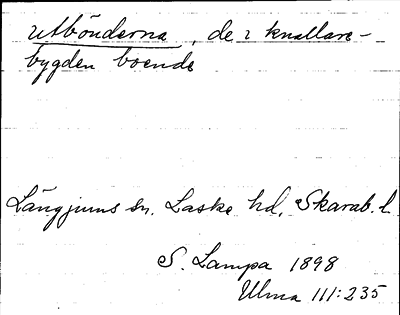 utbönderna, de i knallare-
bygden boende
Långjums sn. Laske hd, Skarab. l.
S. Lampa 1898
Ulma 111:235